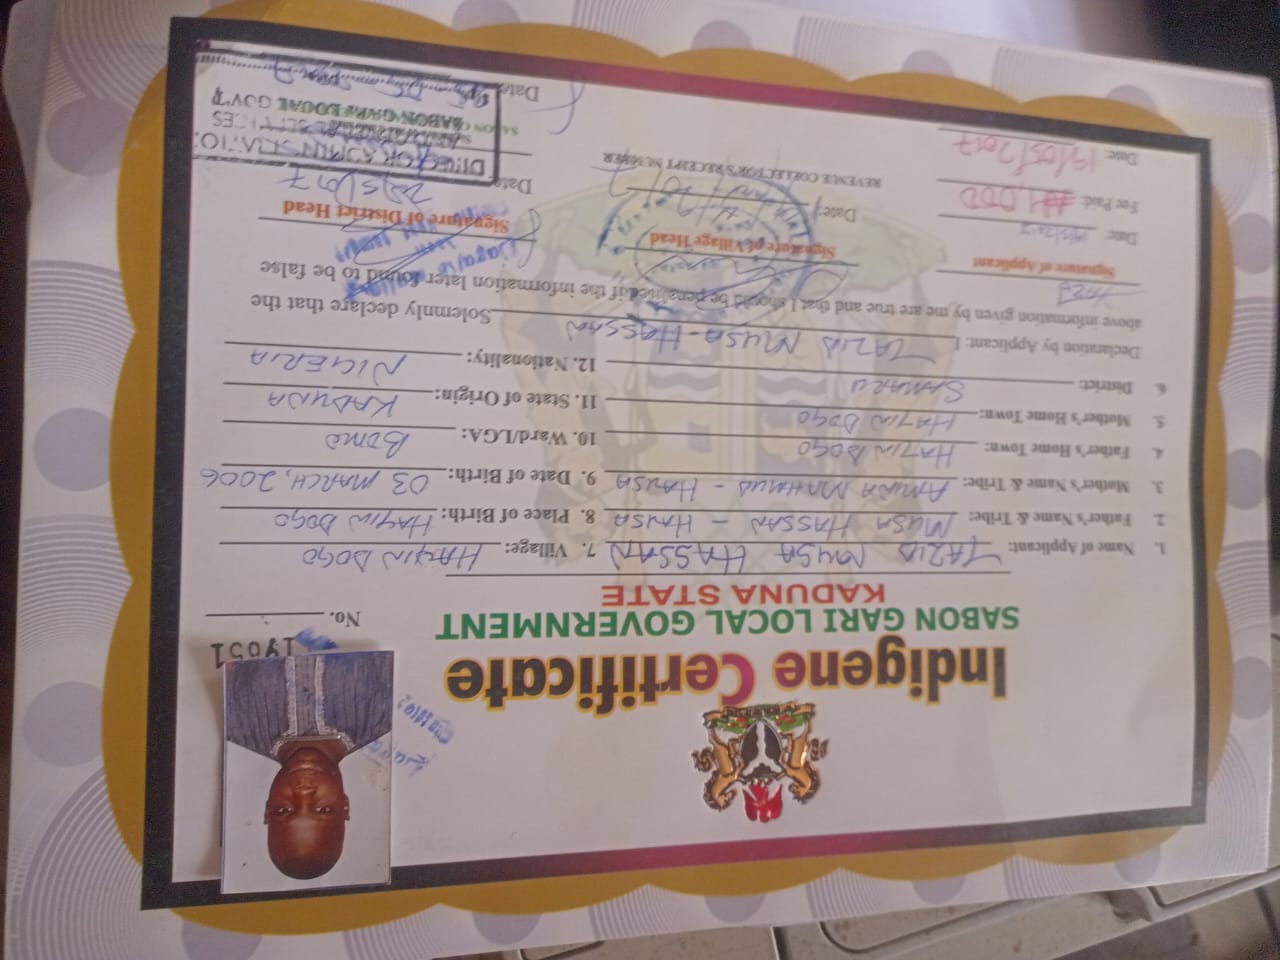 Indigene Certificate
SABON GARI LOCAL GOVERNMENT
KADUNA STATE
No. 19051
1. Name of Applicant: TAZID MUSA HASSAN 7. Village: HAYIN DOGO
2. Father's Name & Tribe: MUSA HASSAN - HAUSA 8. Place of Birth: HAYIN DOGO
3. Mother's Name & Tribe: AMINA MAHMUD - HAUSA 9. Date of Birth: 03 MARCH, 2006
4. Father's Home Town: HAYIN DOGO 10. Ward/LGA: BOMO
5. Mother's Home Town: HAYIN DOGO 11. State of Origin: KADUNA
6. District: SAMARU 12. Nationality: NIGERIA
Declaration by Applicant: I TAZID MUSA-HASSAN Solemnly declare that the
above information given by me are true and that I should be penalised if the information later found to be false
Signature of Applicant Signature of Village Head Signature of District Head
Date: Date: Date:
Fee Paid: ₦1,000
REVENUE COLLECTOR'S RECEIPT NUMBER
Date: 19/05/2017
DIRECTOR ADMINISTRATION
SABON GARI LOCAL GOV'T
Date: